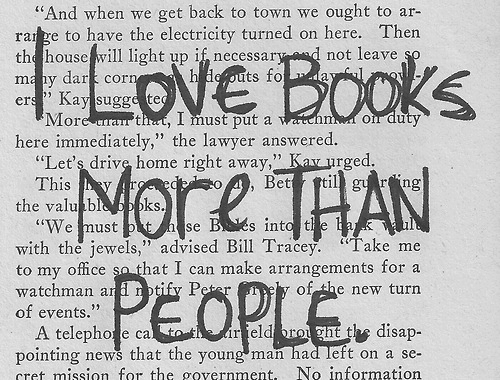 I LOVE BOOKS
MORE THAN
PEOPLE.
“And when we get back to town we ought to ar-
range to have the electricity turned on here. Then
the house will light up if necessary and not leave so
many dark for
ers,” Kay suggested.
“More than that, I must put a watchman on duty
here immediately,” the lawyer answered.
“Let's drive home right away,” Kay urged.
This they proceeded to do, Betty still guarding
the valuable books.
“We must put those into the bank vault
with the jewels,” advised Bill Tracey. “Take me
to my office so that I can make arrangements for a
watchman and notify Peter of the new turn
of events.”
A telephone call to the airfield brought the disap-
pointing news that the young man had left on a se-
cret mission for the government. No information